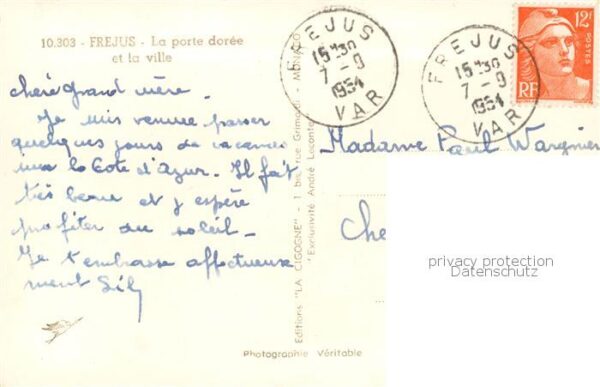 10.303 - FREJUS - La porte dorée
et la ville
chère grand mère -
Je suis venue passer
quelques jours de vacances
sur la Cote d'Azur. Il fait
très beau et j'espère
profiter du soleil -
Je t'embrasse affectueuse
ment
Editions "LA CIGOGNE" - 1 bis, rue Grimaldi - MONACO
"Exclusivité André Leconte"
Photographie Véritable
FREJUS
15H30
7-9
1954
VAR
FREJUS
15H30
7-9
1954
VAR
12F
POSTES
RF
Madame Paul Wargnier
Che
privacy protection
Datenschutz